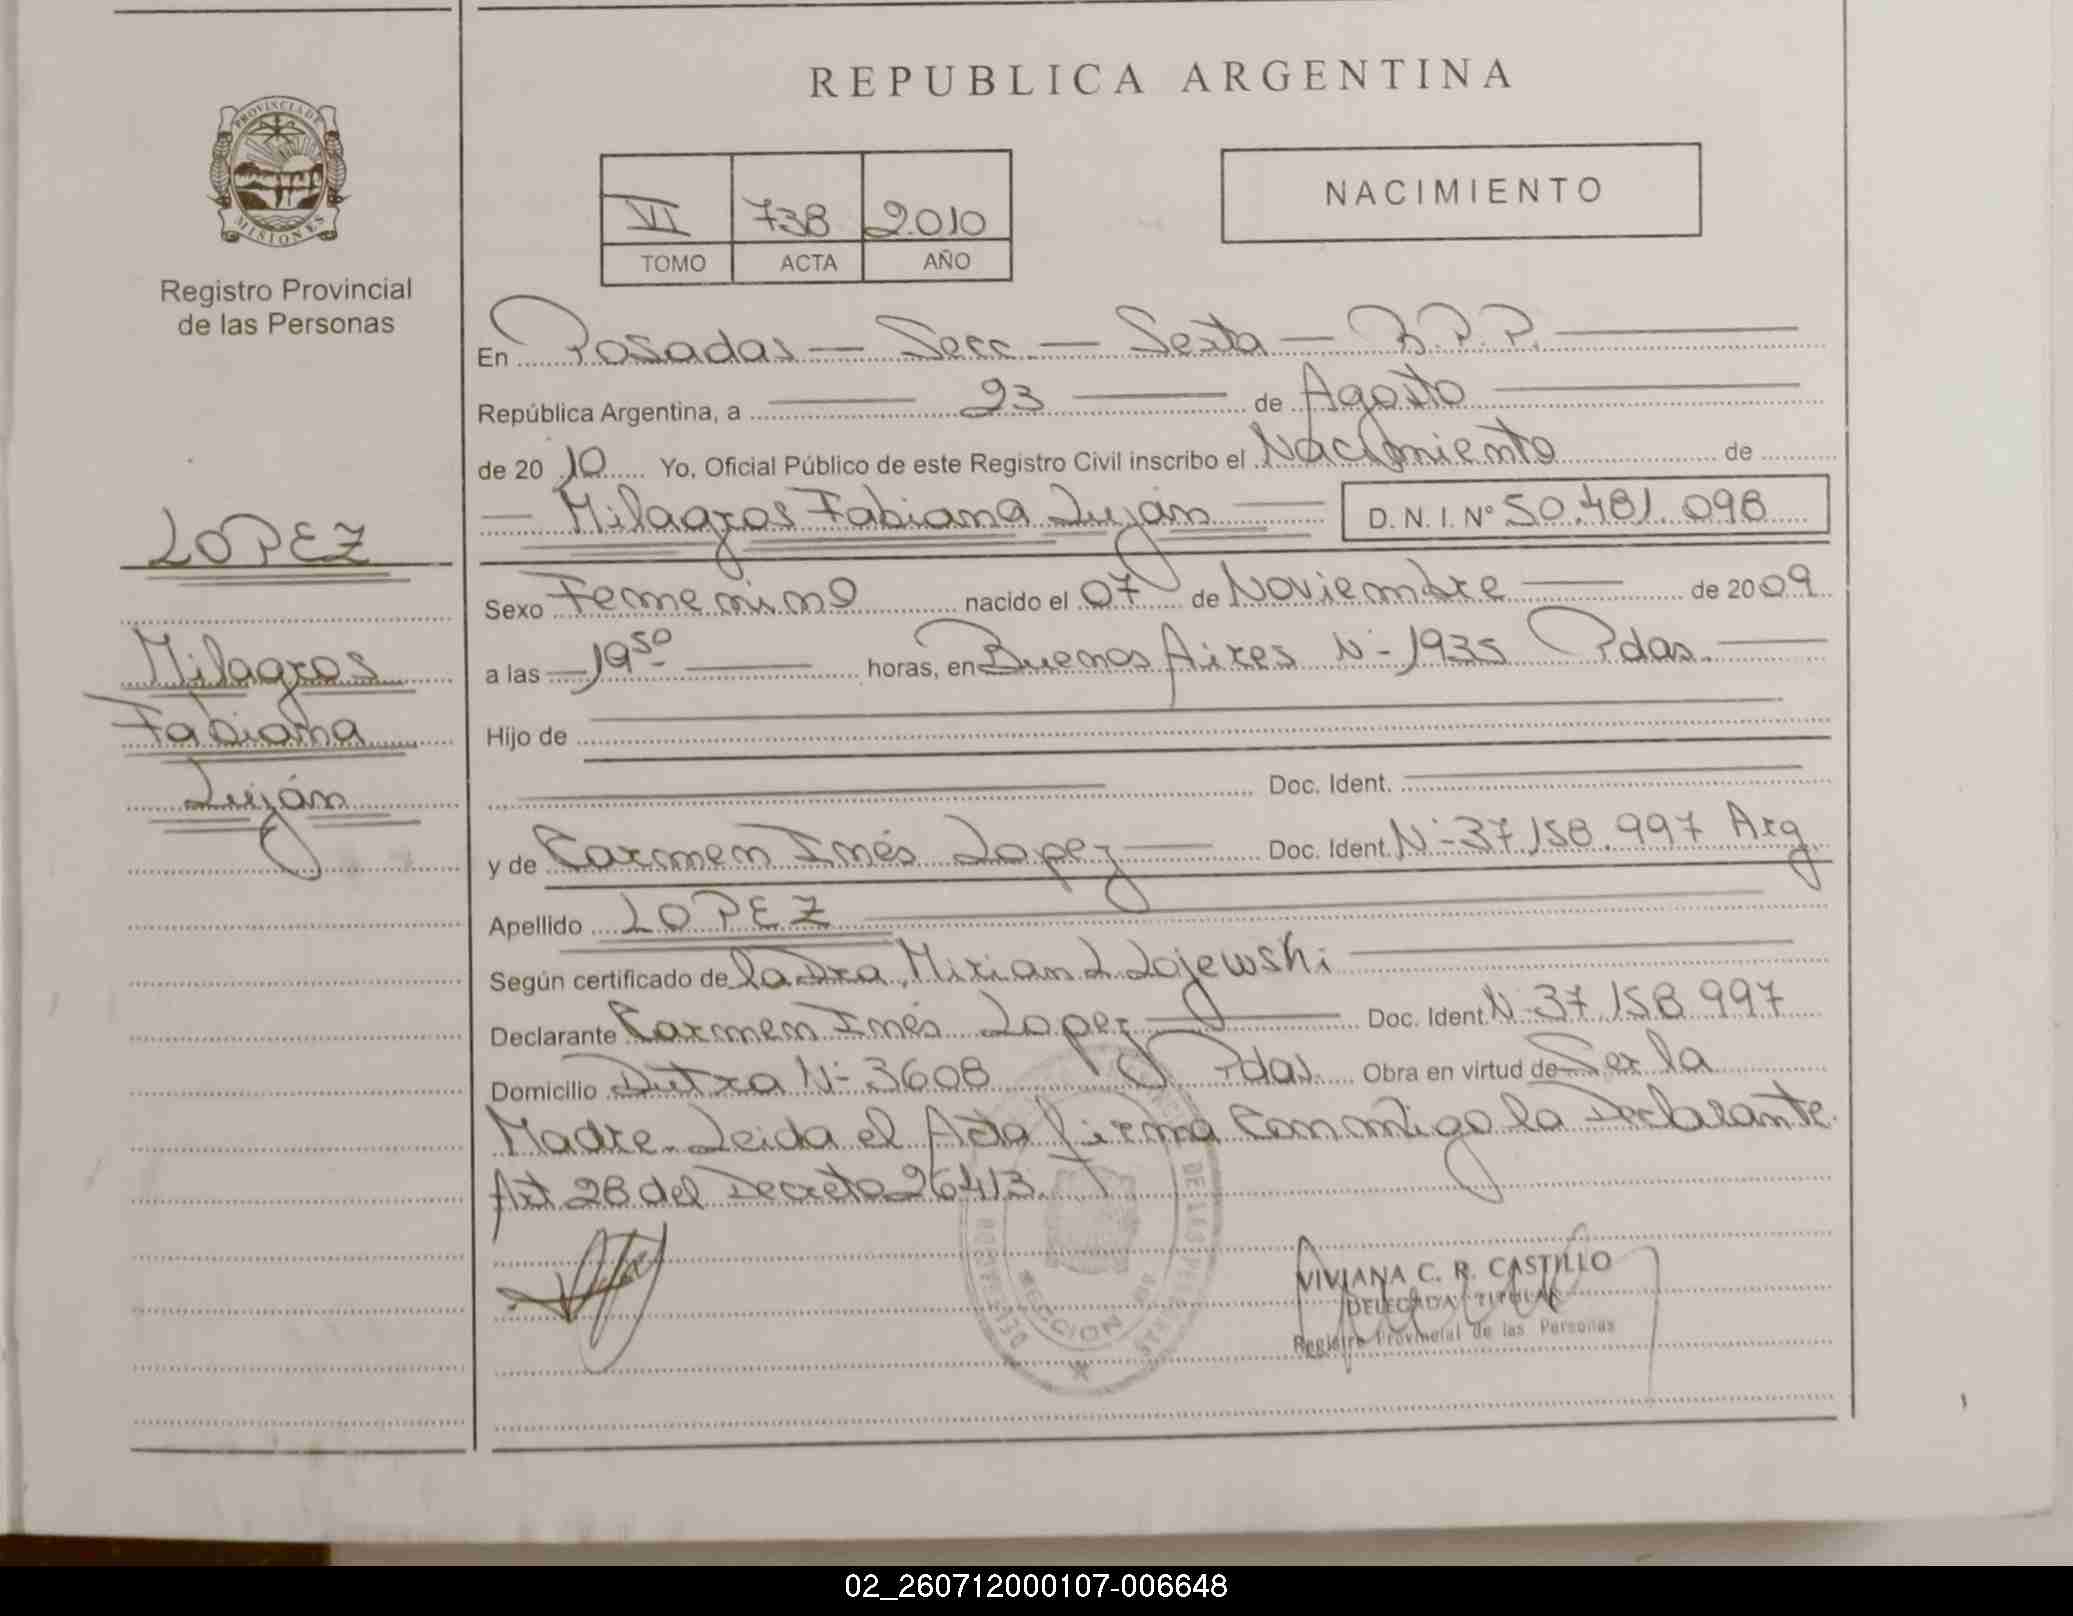 REPUBLICA ARGENTINA
PROVINCIA DE MISIONES
Registro Provincial
de las Personas
NACIMIENTO
VI 738 2010
TOMO ACTA AÑO
En Posadas — Secc — Sexta — R.P.P.
República Argentina, a 23 de Agosto
de 20 10 Yo, Oficial Público de este Registro Civil inscribo el Nacimiento de
Milagros Fabiana Luján D.N.I. Nº 50.481.098
LOPEZ
Milagros
Fabiana
Luján
Sexo Femenino nacido el 07 de Noviembre de 2009
a las 19 50 horas, en Buenos Aires Nº 1935 Pdas.
Hijo de
Doc. Ident.
y de Carmen Inés Lopez Doc. Ident. Nº 37.158.997 Arg
Apellido LOPEZ
Según certificado de la Dra. Mirian L Lojewski
Declarante Carmen Inés Lopez Doc. Ident Nº 37.158.997
Domicilio Dutra Nº 3608 Pdas. Obra en virtud de Ser la
Madre. Leida el Acta firma conmigo la Declarante.
Art. 28 del Decreto 26413.
VIVIANA C. R. CASTILLO
DELEGADA TITULAR
Registro Provincial de las Personas
02_260712000107-006648